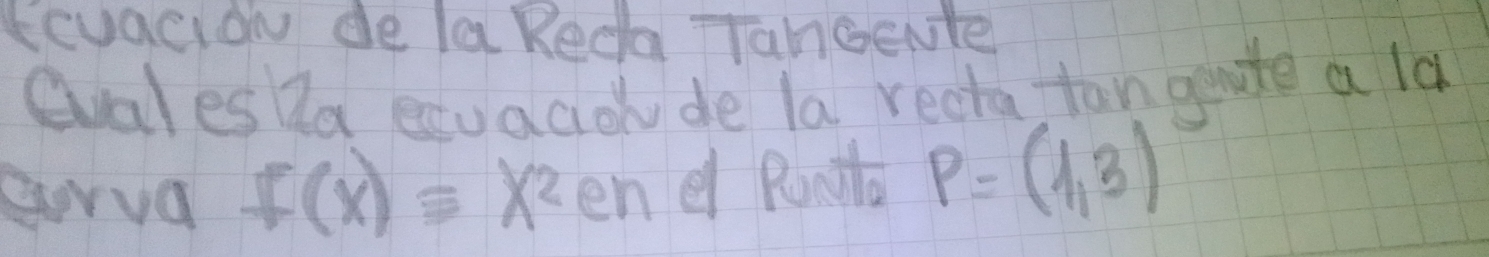 Ecuación de la Recta Tangente
Cual es la ecuación de la recta tangente a la
curva f(x) = x² en el Punto P = (1,3)